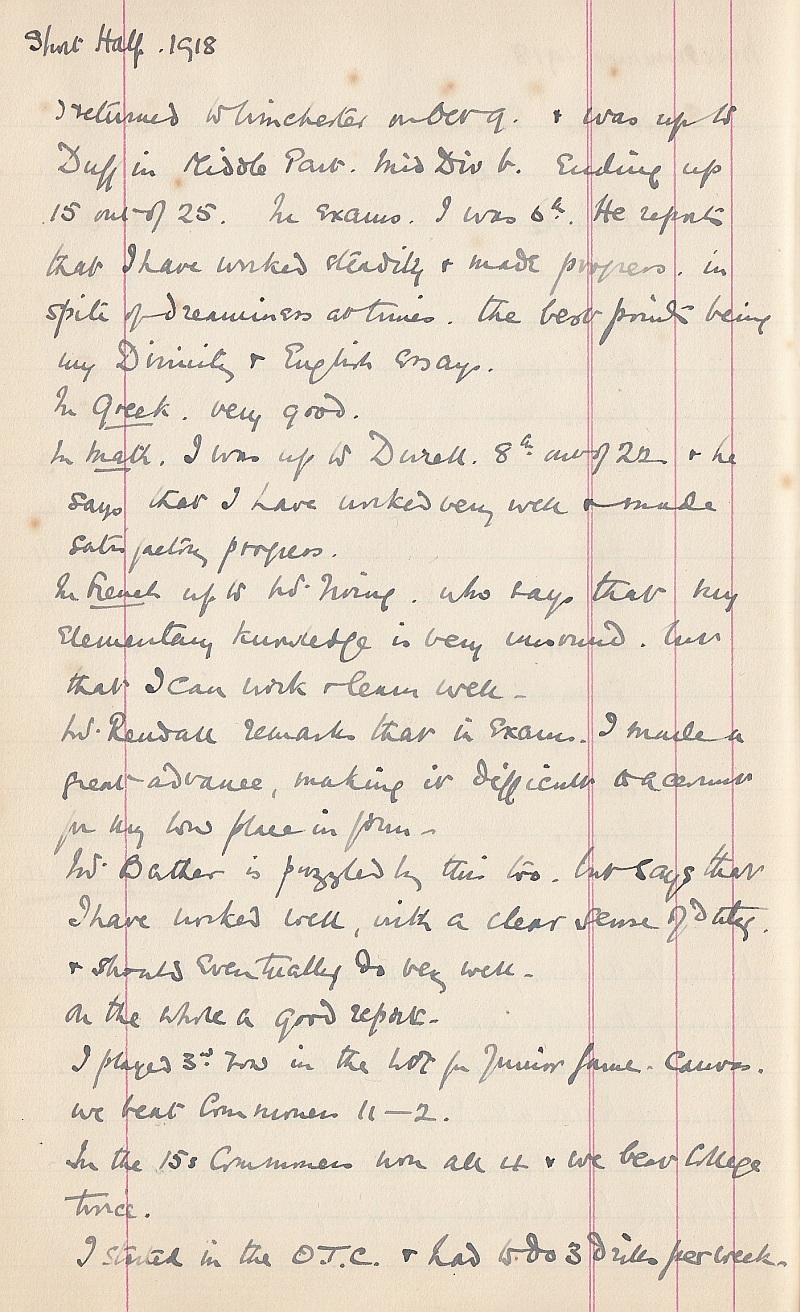 Short Half. 1918
I returned to Winchester on Oct 9. & was up to
Duff in Middle Part. Mid Div b. Ending up
15 out of 25. In Exams. I was 6th. He reports
that I have worked steadily & made progress. in
spite of dreaminess at times. the best points being
my Divinity & English Essays.
In Greek. very good.
In Math. I was up to Durell. 8th out of 22 & he
says that I have worked very well & made
satisfactory progress.
In French up to Mr. Irving. who says that my
Elementary knowledge is very unsound. but
that I can work & learn well -
Mr. Rendall remarks that in Exams. I made a
great advance, making it difficult to account
for my low place in form -
Mr. Bather is puzzled by this too. but says that
I have worked well, with a clear sense of duty.
& should Eventually do very well -
on the whole a good report -
I played 3rd row in the hot for Junior Game - Canvas.
we beat Commoners 11 - 2.
In the 15s Commoners won all 4 & we beat College
twice.
I started in the O.T.C. & had to do 3 drills per week -